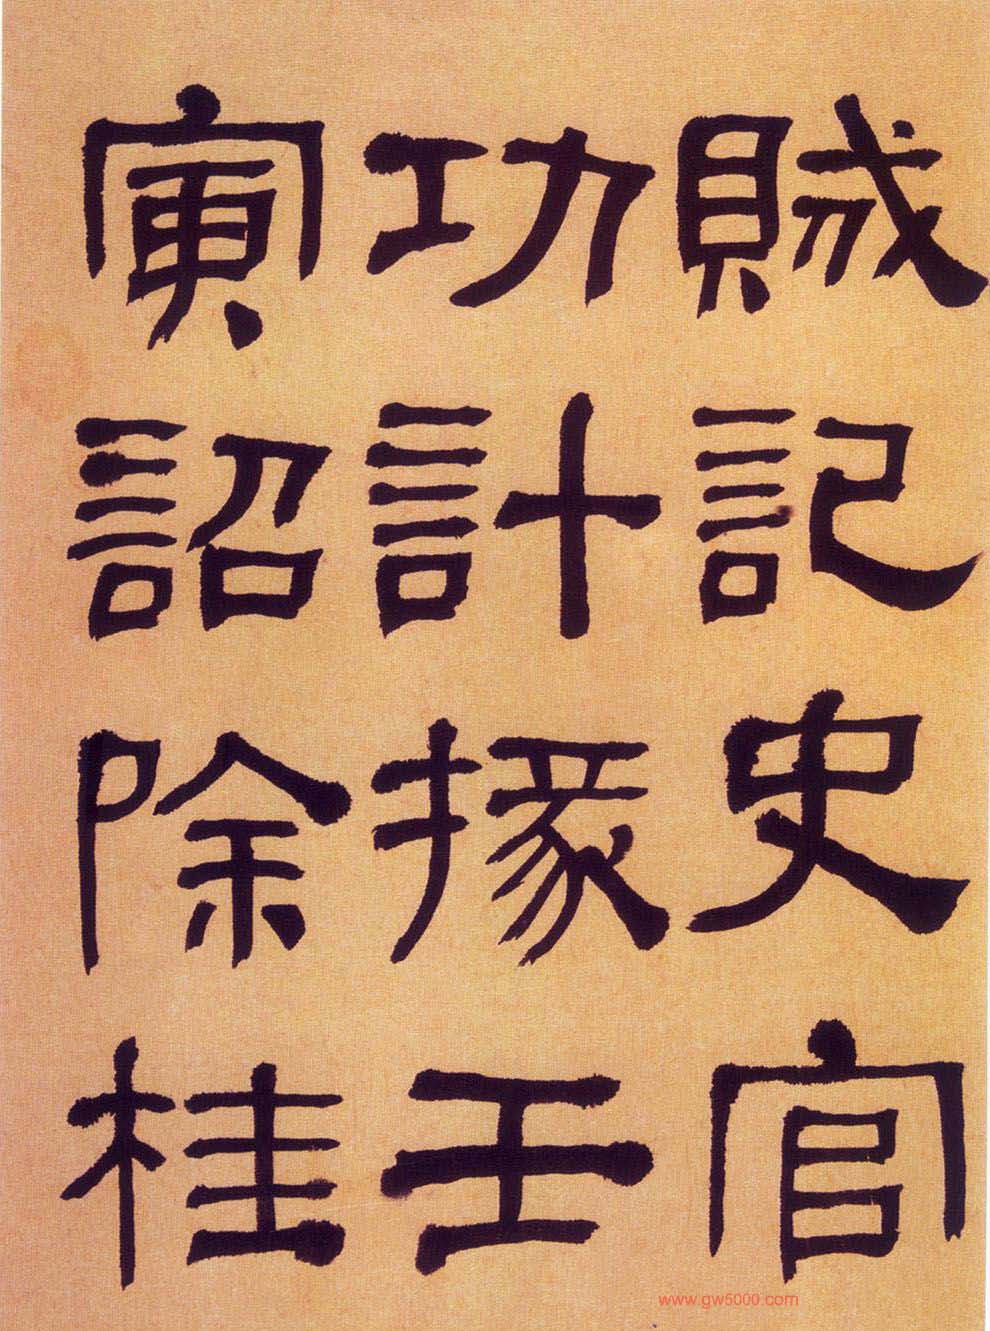 賊記史官
功計掾壬
寅詔除桂
www.gw5000.com